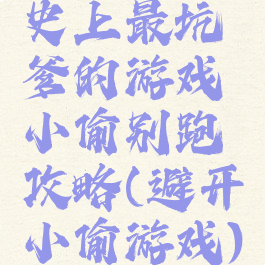 史上最坑
爹的游戏
小偷别跑
攻略(避开
小偷游戏)